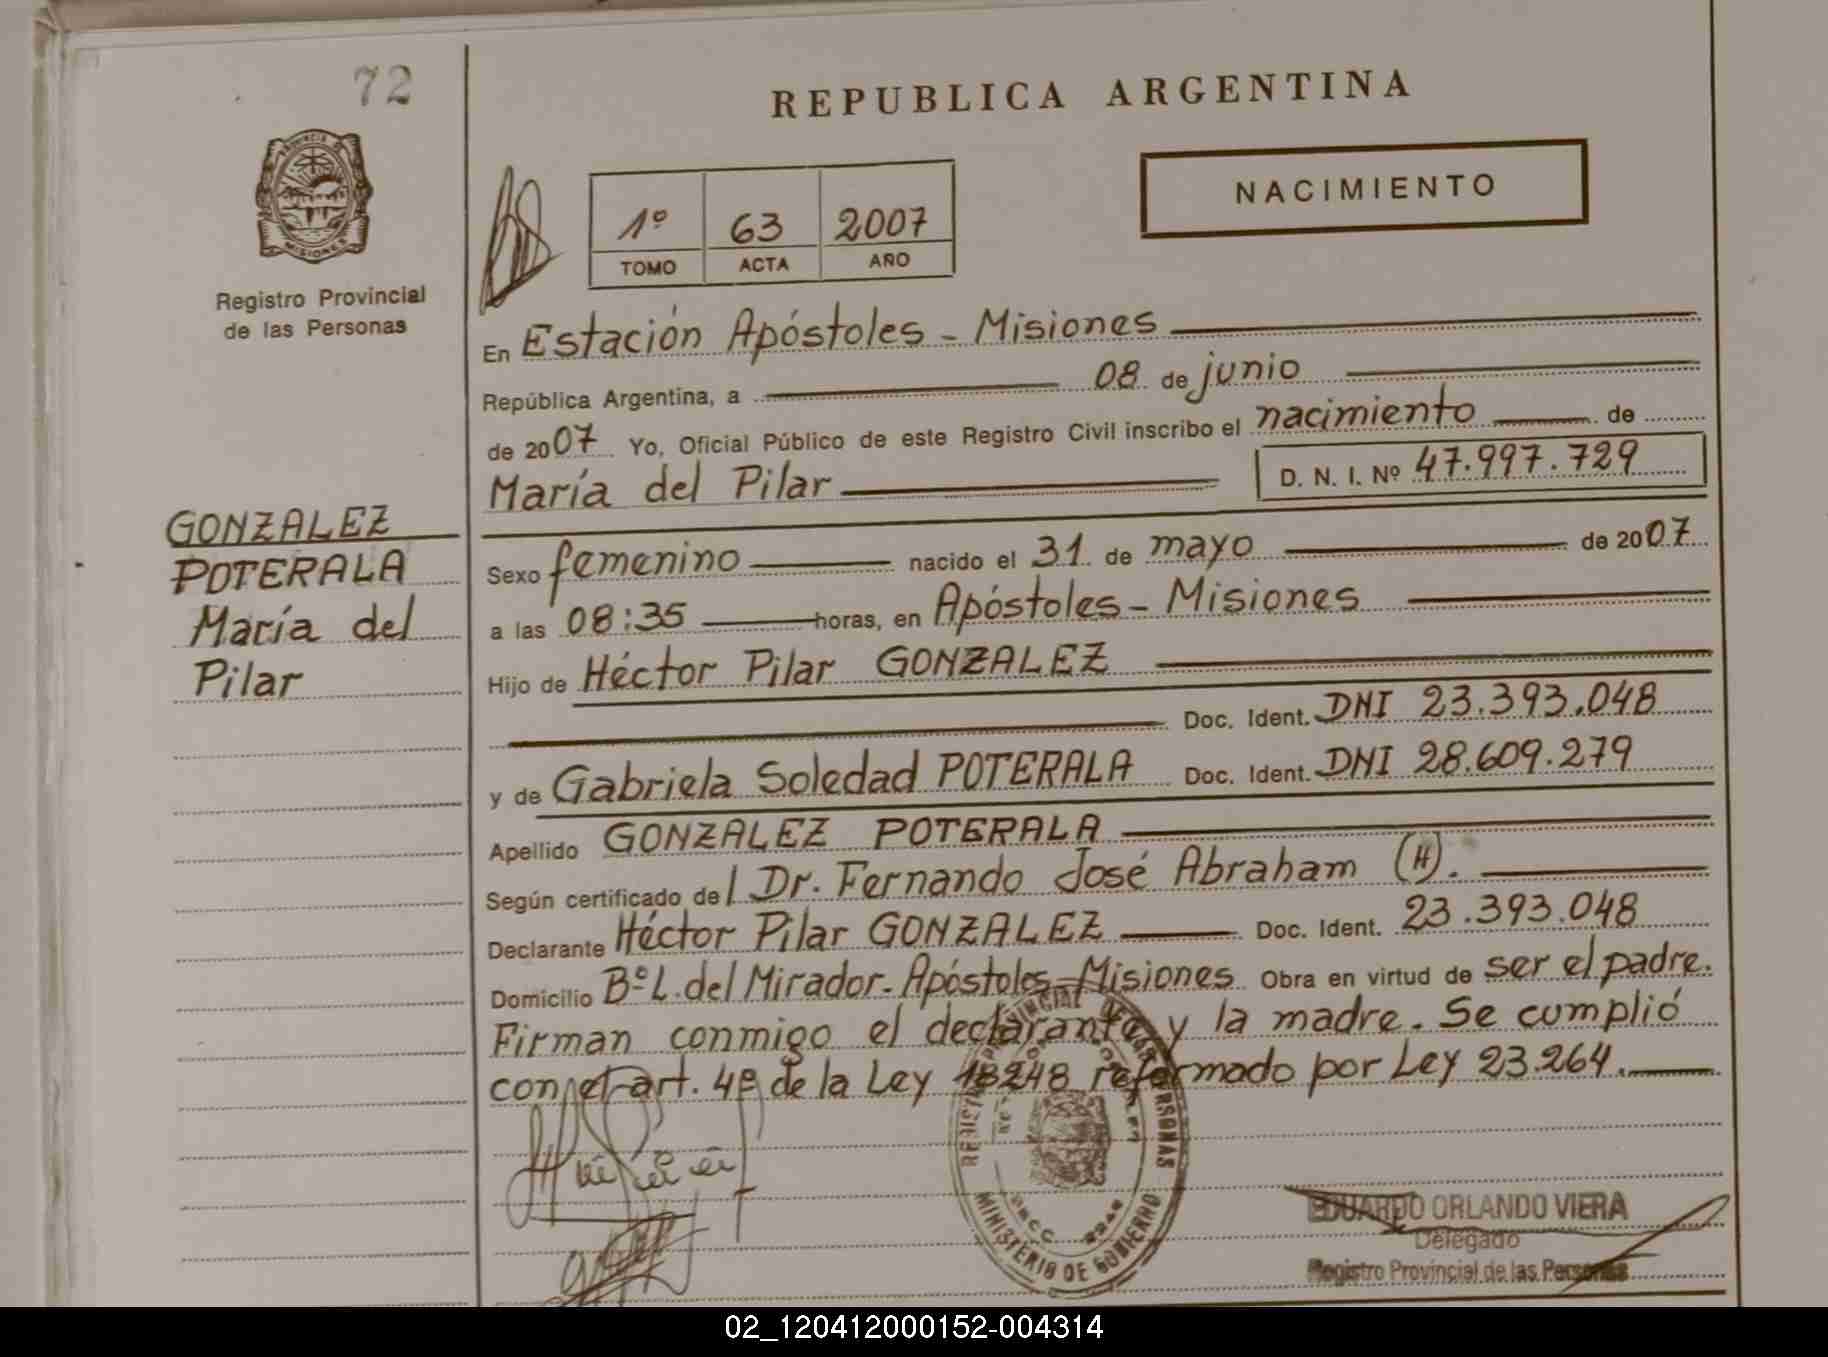 72
REPUBLICA ARGENTINA
PROVINCIA DE
MISIONES
Registro Provincial
de las Personas
1º 63 2007
TOMO ACTA AÑO
NACIMIENTO
En Estación Apóstoles - Misiones
República Argentina, a 08 de junio
de 2007 Yo, Oficial Público de este Registro Civil inscribo el nacimiento de
María del Pilar D. N. I. Nº 47.997.729
GONZALEZ
POTERALA
María del
Pilar
Sexo femenino nacido el 31 de mayo de 2007
a las 08:35 horas, en Apóstoles - Misiones
Hijo de Héctor Pilar GONZALEZ
Doc. Ident. DNI 23.393.048
y de Gabriela Soledad POTERALA Doc. Ident. DNI 28.609.279
Apellido GONZALEZ POTERALA
Según certificado del Dr. Fernando José Abraham (H).
Declarante Héctor Pilar GONZALEZ Doc. Ident. 23.393.048
Domicilio Bº L. del Mirador - Apóstoles - Misiones Obra en virtud de ser el padre.
Firman conmigo el declarante y la madre. Se cumplió
con el art. 4º de la Ley 18248 reformado por Ley 23.264.
REGISTRO PROVINCIAL DE LAS PERSONAS
MINISTERIO DE GOBIERNO
EDUARDO ORLANDO VIERA
Delegado
Registro Provincial de las Personas
02_120412000152-004314